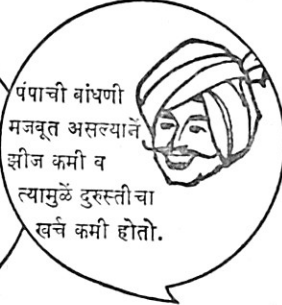 पंपाची बांधणी
मजबूत असल्यानें
झीज कमी व
त्यामुळें दुरुस्तीचा
खर्च कमी होतो.